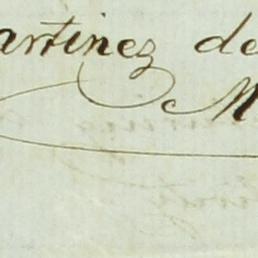 artinez de
M